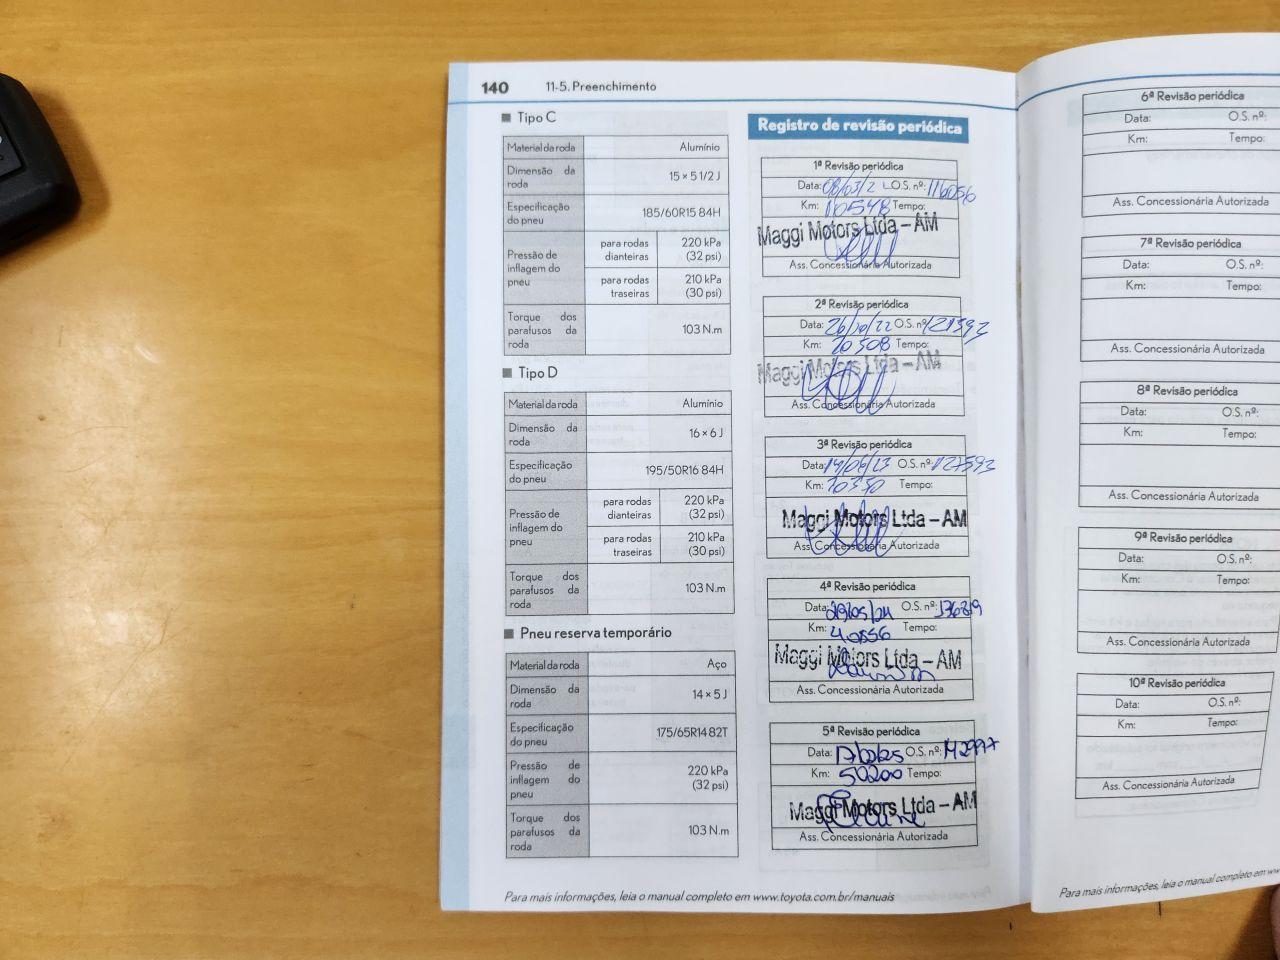 140 11-5. Preenchimento
Tipo C
Material da roda Alumínio
Dimensão da roda 15 × 5 1/2 J
Especificação do pneu 185/60R15 84H
Pressão de inflagem do pneu
para rodas dianteiras 220 kPa (32 psi)
para rodas traseiras 210 kPa (30 psi)
Torque dos parafusos da roda 103 N.m
Tipo D
Material da roda Alumínio
Dimensão da roda 16 × 6 J
Especificação do pneu 195/50R16 84H
Pressão de inflagem do pneu
para rodas dianteiras 220 kPa (32 psi)
para rodas traseiras 210 kPa (30 psi)
Torque dos parafusos da roda 103 N.m
Pneu reserva temporário
Material da roda Aço
Dimensão da roda 14 × 5 J
Especificação do pneu 175/65R14 82T
Pressão de inflagem do pneu 220 kPa (32 psi)
Torque dos parafusos da roda 103 N.m
Registro de revisão periódica
1ª Revisão periódica
Data: O.S. nº: 116056
Km: 10548 Tempo:
Maggi Motors Ltda – AM
Ass. Concessionária Autorizada
2ª Revisão periódica
Data: 26/10/22 O.S. nº: 121393
Km: 20508 Tempo:
Maggi Motors Ltda – AM
Ass. Concessionária Autorizada
3ª Revisão periódica
Data: 14/06/23 O.S. nº: 127593
Km: Tempo:
Maggi Motors Ltda – AM
Ass. Concessionária Autorizada
4ª Revisão periódica
Data: O.S. nº: 136819
Km: Tempo:
Maggi Motors Ltda – AM
Ass. Concessionária Autorizada
5ª Revisão periódica
Data: O.S. nº: 142997
Km: 50200 Tempo:
Maggi Motors Ltda – AM
Ass. Concessionária Autorizada
Para mais informações, leia o manual completo em www.toyota.com.br/manuais
6ª Revisão periódica
Data: O.S. nº:
Km: Tempo:
Ass. Concessionária Autorizada
7ª Revisão periódica
Data: O.S. nº:
Km: Tempo:
Ass. Concessionária Autorizada
8ª Revisão periódica
Data: O.S. nº:
Km: Tempo:
Ass. Concessionária Autorizada
9ª Revisão periódica
Data: O.S. nº:
Km: Tempo:
Ass. Concessionária Autorizada
10ª Revisão periódica
Data: O.S. nº:
Km: Tempo:
Ass. Concessionária Autorizada
Para mais informações, leia o manual completo em